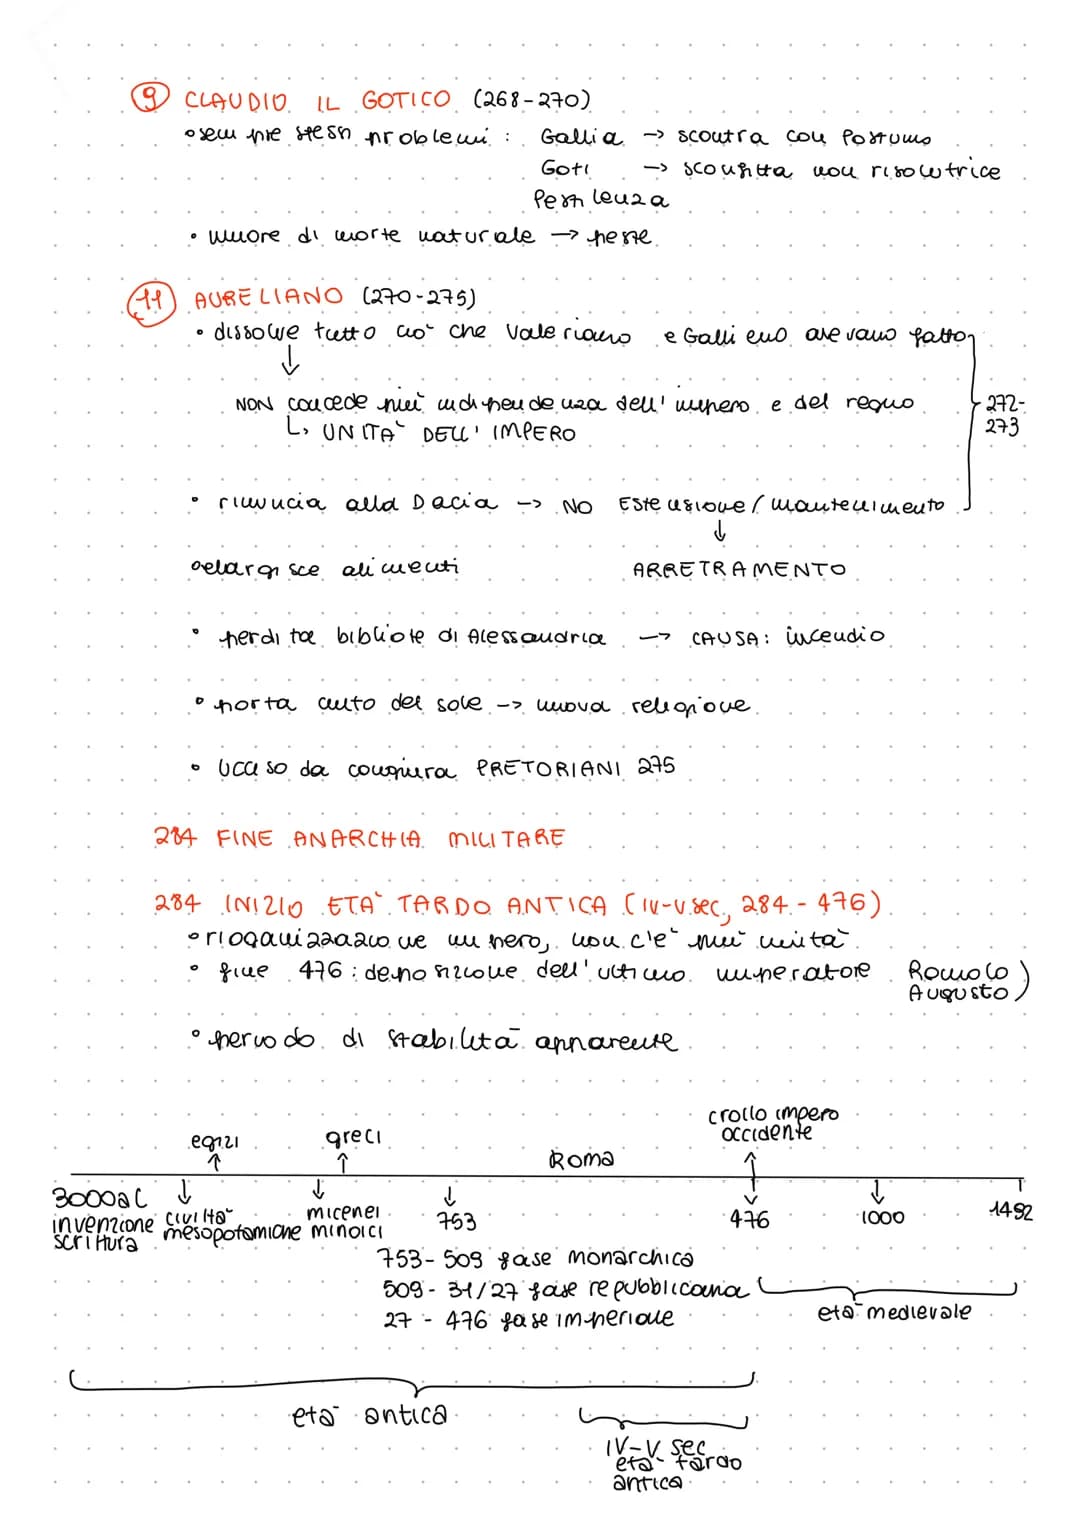 9 CLAUDIO IL GOTICO (268-270)
• sempre stessi problemi : Gallia → scontra con Postumo
Goti → sconfitta non risolutrice
Pestilenza
• muore di morte naturale → peste
11 AURELIANO (270-275)
• dissolve tutto ciò che Valeriano e Gallieno avevano fatto
↓
NON concede più indipendenza dell'impero e del regno
↳ UNITÀ DELL'IMPERO
272-
273
• rinuncia alla Dacia → NO Estensione/mantenimento
↓
• elargisce alimenti ARRETRAMENTO
• perdita bibliote di Alessandria → CAUSA: incendio
• porta culto del sole → nuova religione
• ucciso da congiura PRETORIANI 275
284 FINE ANARCHIA MILITARE
284 INIZIO ETÀ TARDO ANTICA (IV-V sec, 284-476)
• riorganizzazione impero, non c'è più unità
• fine 476: deposizione dell'ultimo imperatore Romolo
Augusto)
• periodo di stabilità apparente
crollo impero
occidente
egizi greci
Roma
3000 a C
invenzione
scrittura
civiltà
mesopotamiche
micenei
minoici
753 476 1000 1492
753-509 fase monarchica
509-31/27 fase repubblicana
27-476 fase imperiale
età medievale
età antica
IV-V sec
età tardo
antica